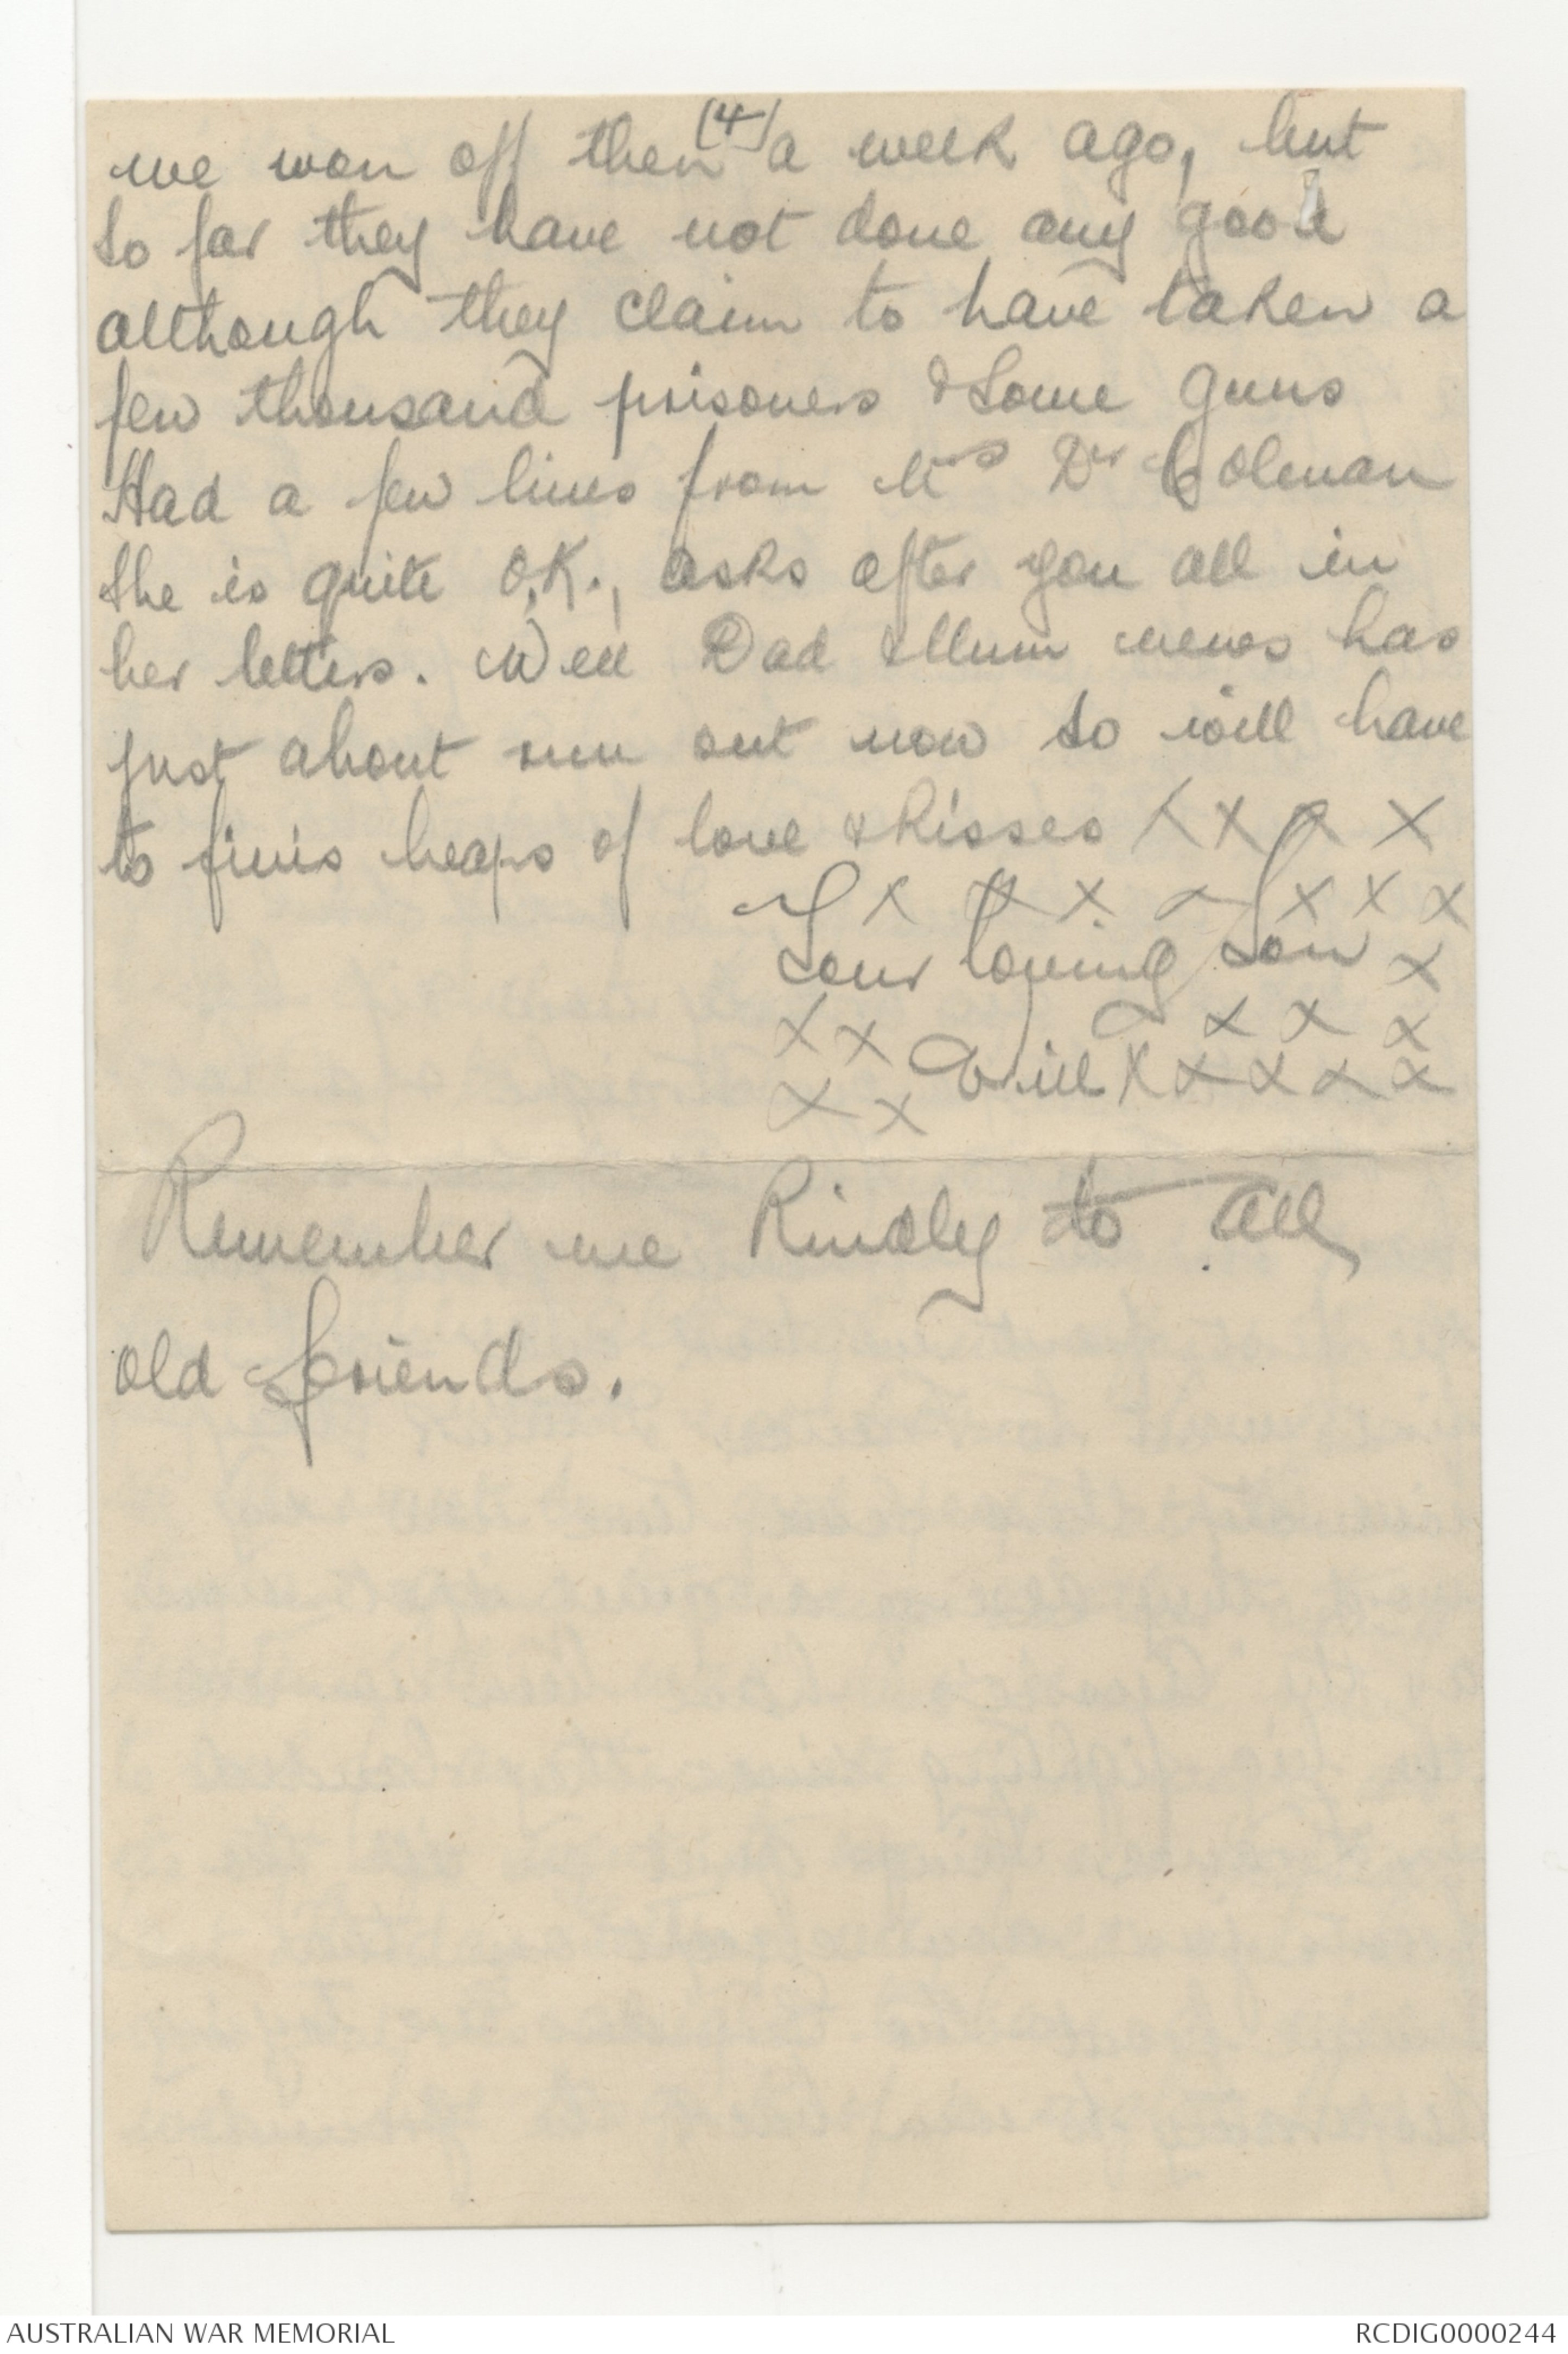 (4)
we won off then a week ago, but
so far they have not done any good
although they claim to have taken a
few thousand prisoners & some guns
Had a few lines from Mrs Dr Colman
she is quite O.K., asks after you all in
her letters. Well Dad & Mum news has
just about run out now so will have
to finis heaps of love & kisses X X X X
X X X X X X
Your loving Son X
X X X X X
Will X X X X X
X X
Remember me kindly to all
old friends.
AUSTRALIAN WAR MEMORIAL
RCDIG0000244